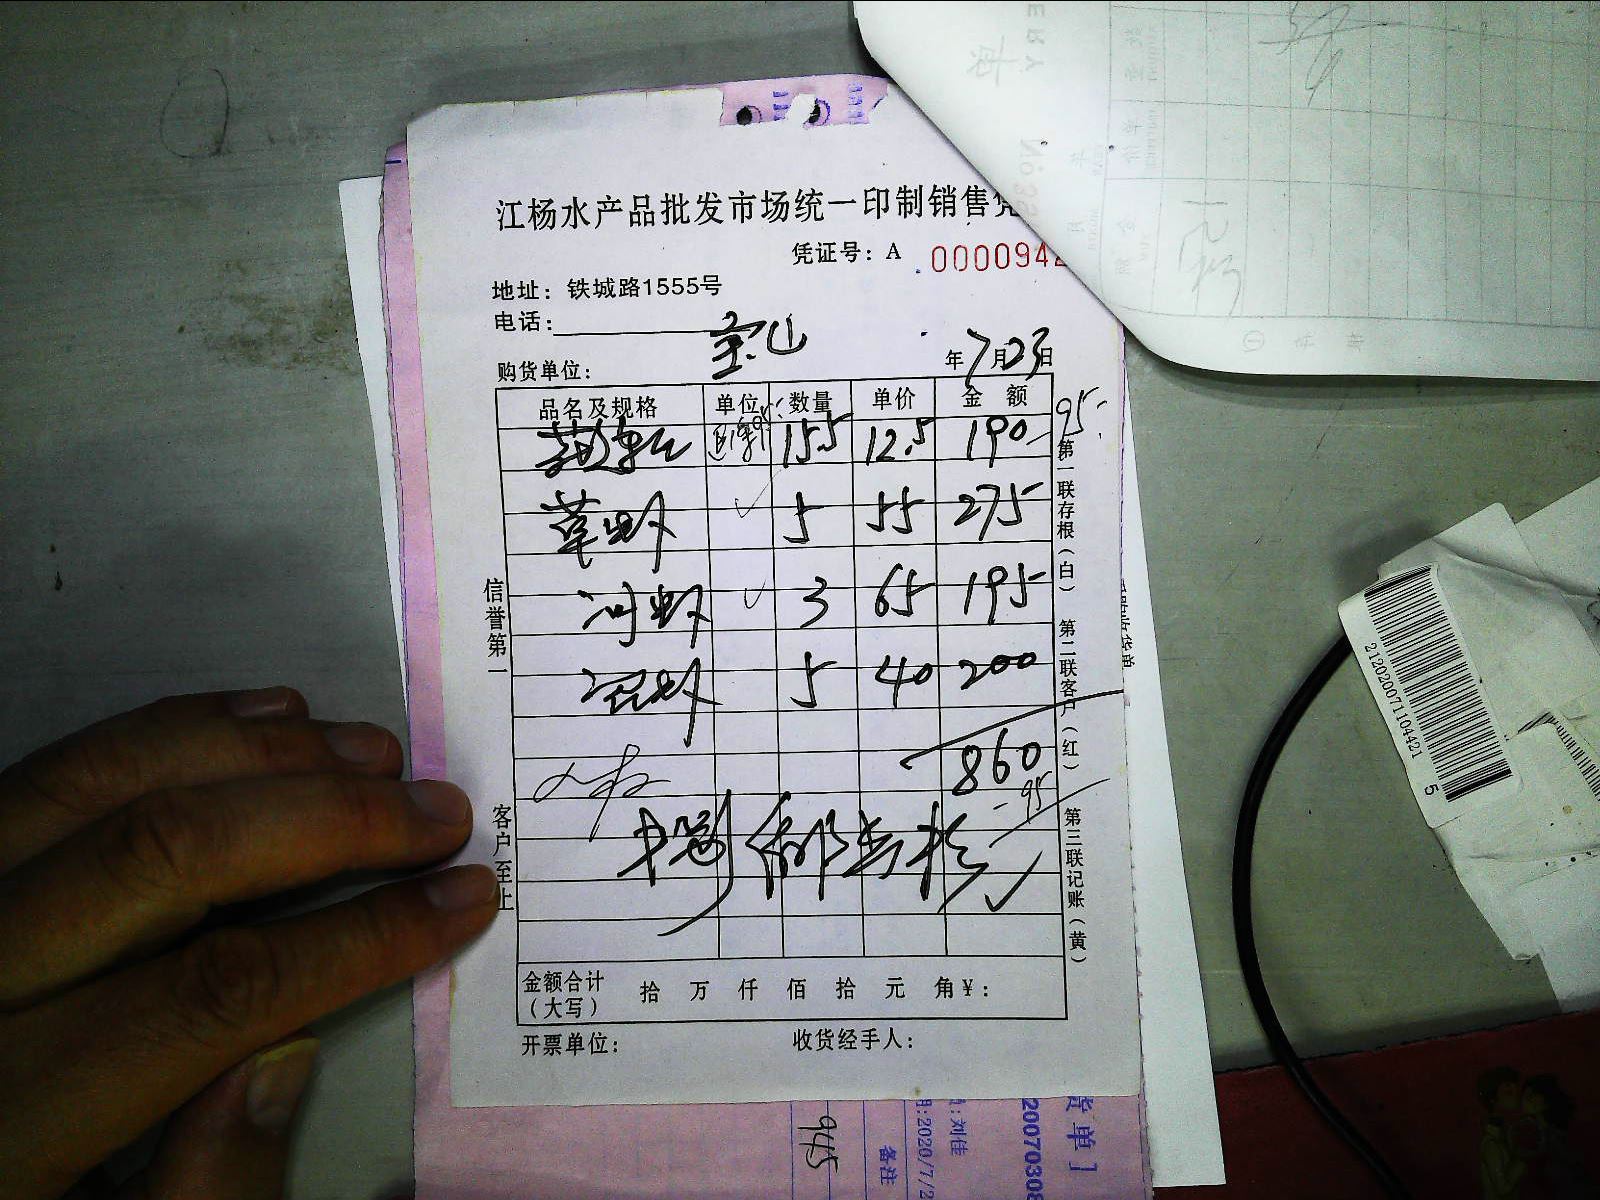 江杨水产品批发市场统一印制销售凭
凭证号：A 0000942
地址：铁城路1555号
电话：
购货单位： 宝山 年7月23日
品名及规格 单位 数量 单价 金额
15.5 12.5 190 95
草虾 5 55 275
河虾 3 65 195
5 40 200
860
-95
金额合计（大写） 拾 万 仟 佰 拾 元 角 ¥：
开票单位： 收货经手人：
信誉第一
客户至上
第一联存根（白）
第二联客户（红）
第三联记账（黄）
2120200711044215
945
刘佳
备注
:2020/7/2
货单]
20070308